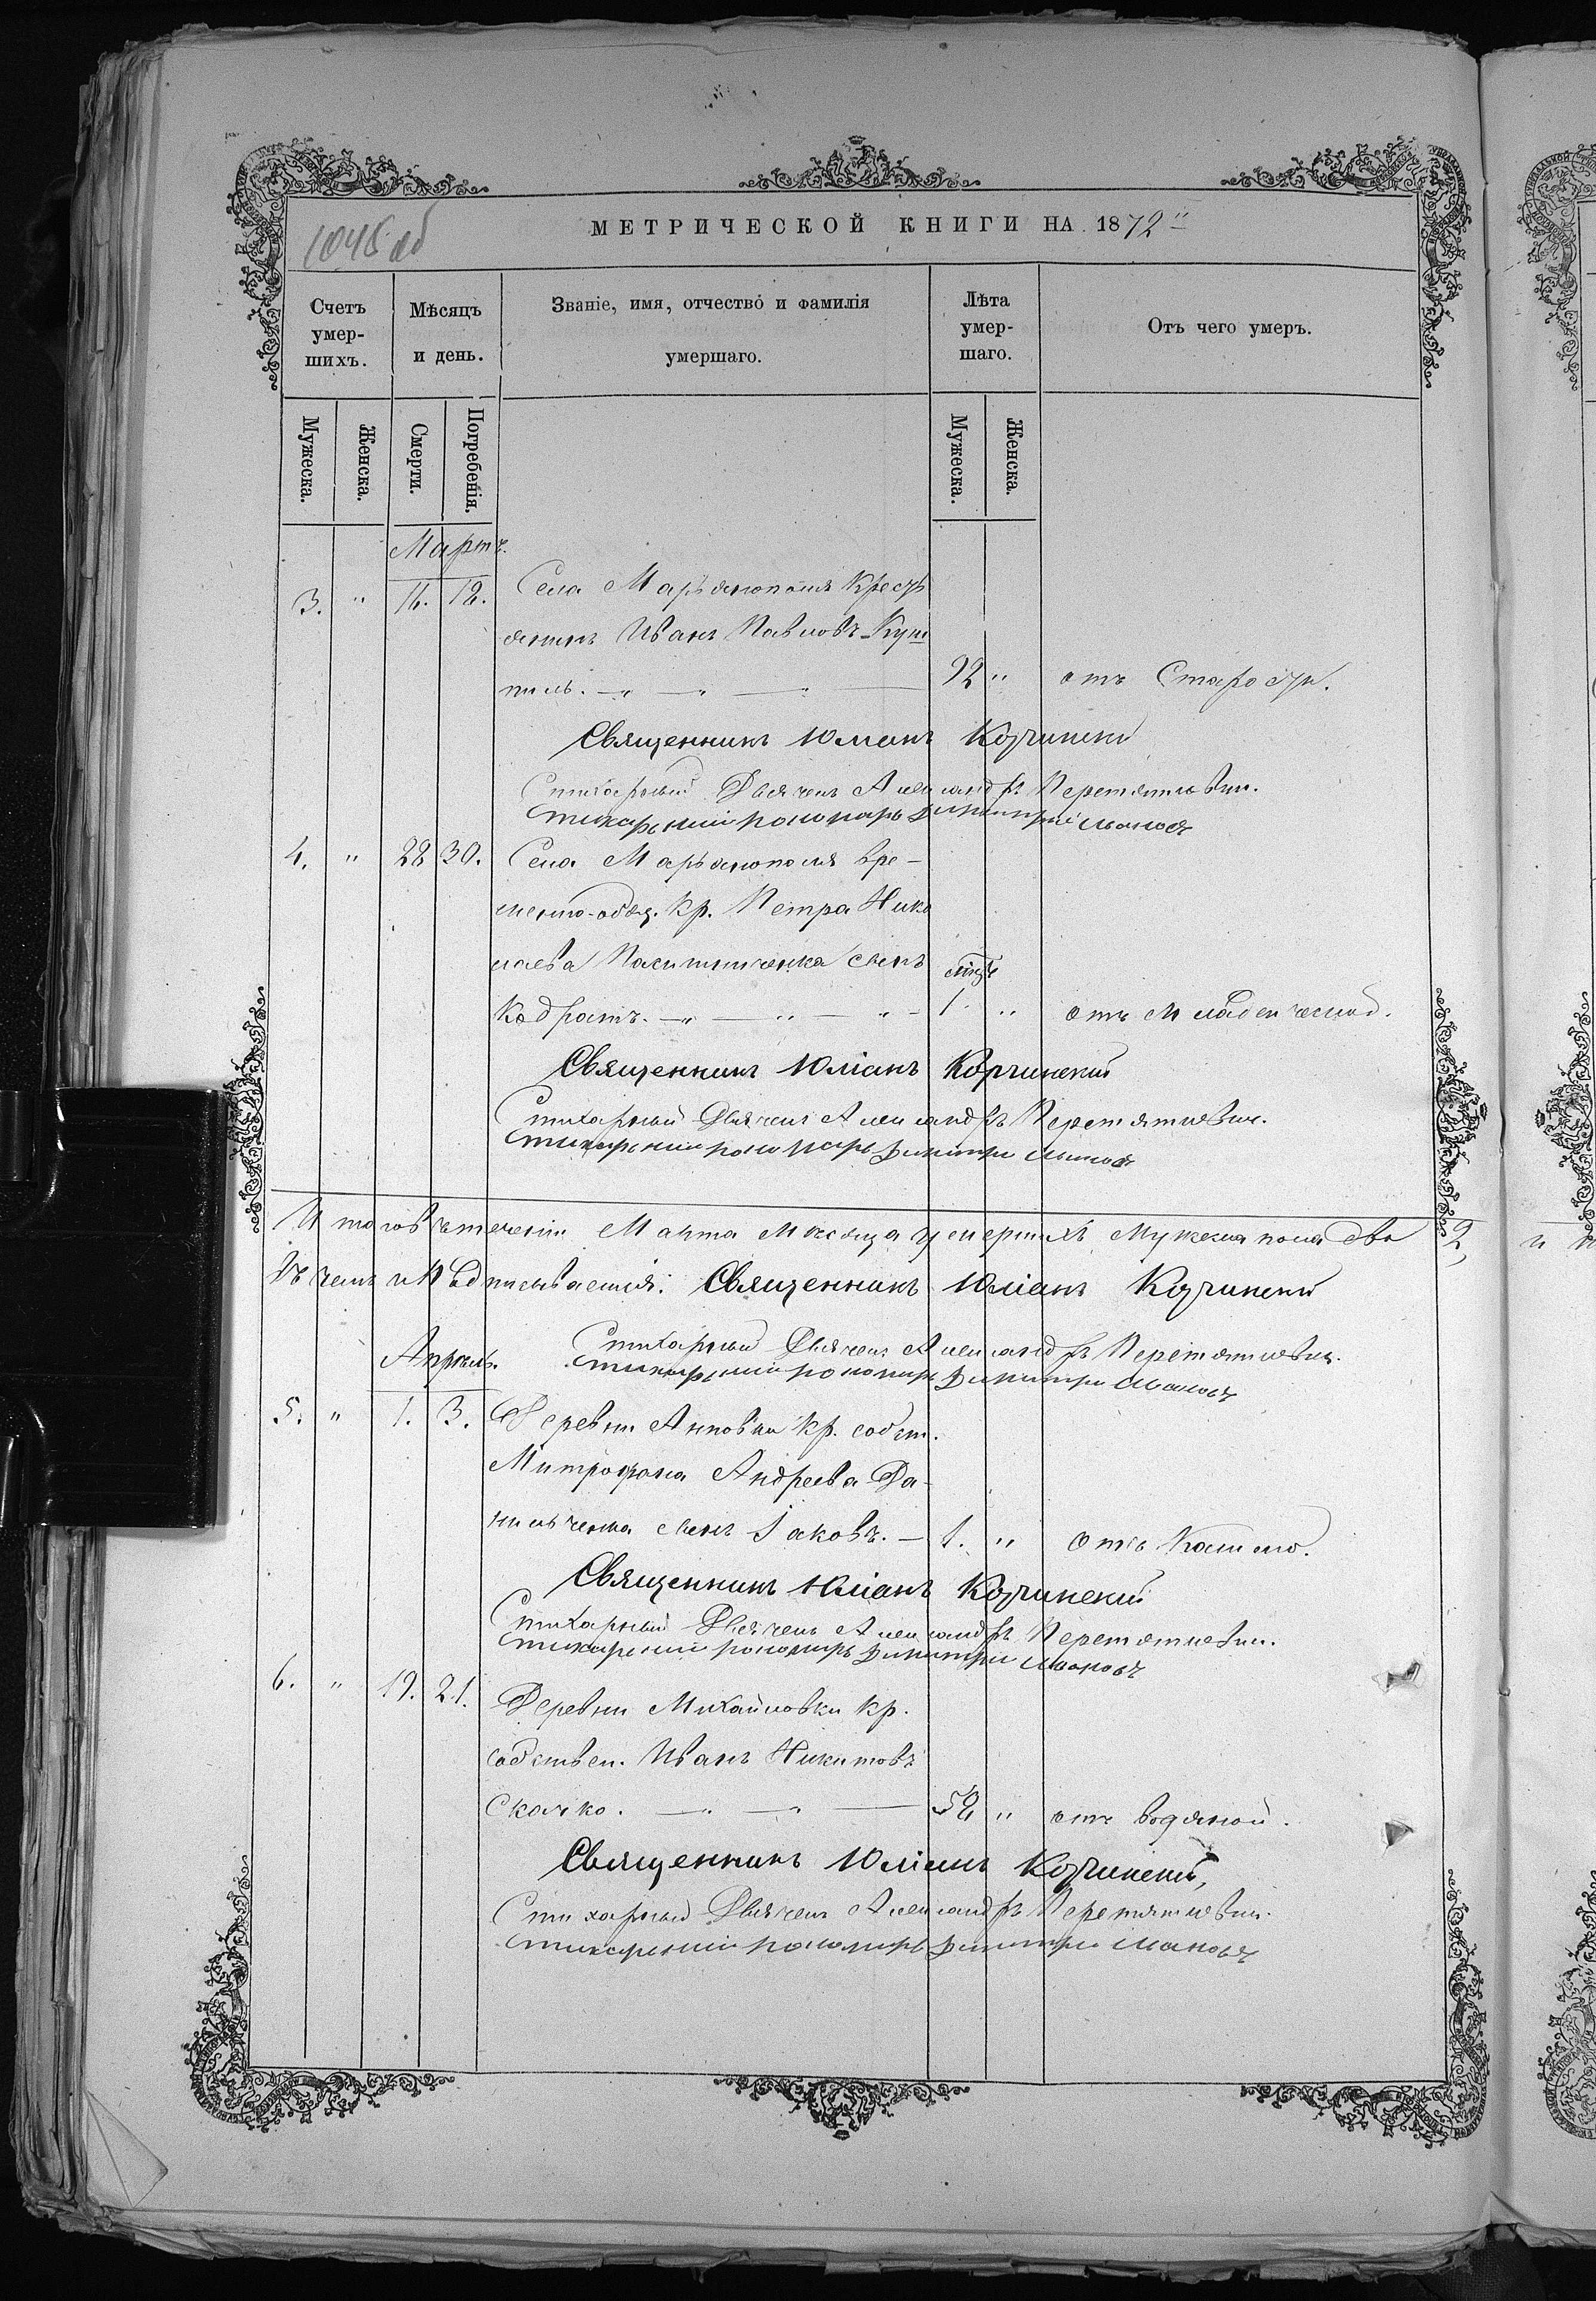 1045 об
МЕТРИЧЕСКОЙ КНИГИ НА 1872
Счетъ умер-шихъ.
Мѣсяцъ и день.
Званіе, имя, отчество и фамилія умершаго.
Лѣта умер-шаго.
Отъ чего умеръ.
Мужеска.
Женска.
Смерти.
Погребенія.
Мужеска.
Женска.
Мартъ.
3. " 16. 18. Села Марьянополя Кресть
янинъ Иванъ Павловъ
92 " отъ Старости.
Священникъ Юліанъ Корчинскій
Стихарный Дьячекъ Александръ
Стихарный пономарь Димитрій
4. " 28 30. Села Марьянополя вре-
менно-обяз. Кр. Петра Нико
лаева сынъ
Кодратъ. 1 " отъ младенческой.
Священникъ Юліанъ Корчинскій
Стихарный Дьячекъ Александръ
Стихарный пономарь Димитрій
Итого въ теченіи Марта Месяца умершихъ Мужеска пола два 2,
Въ чемъ и подписываемся: Священникъ Юліанъ Корчинскій
Стихарный Дьячекъ Александръ
Апрель. Стихарный пономарь Димитрій
5. " 1. 3. Деревни Анновки Кр. собст.
Митрофана Андреева Да-
нильченка сынъ Іаковъ. 1. " Отъ Кашлю.
Священникъ Юліанъ Корчинскій
Стихарный Дьячекъ Александръ
Стихарный пономарь Димитрій
6. " 19. 21. Деревни Михайловки Кр.
собствен. Иванъ Никитовъ
Скачко. 58 " отъ водяной.
Священникъ Юліанъ Корчинскій,
Стихарный Дьячекъ Александръ
Стихарный пономарь Димитрій